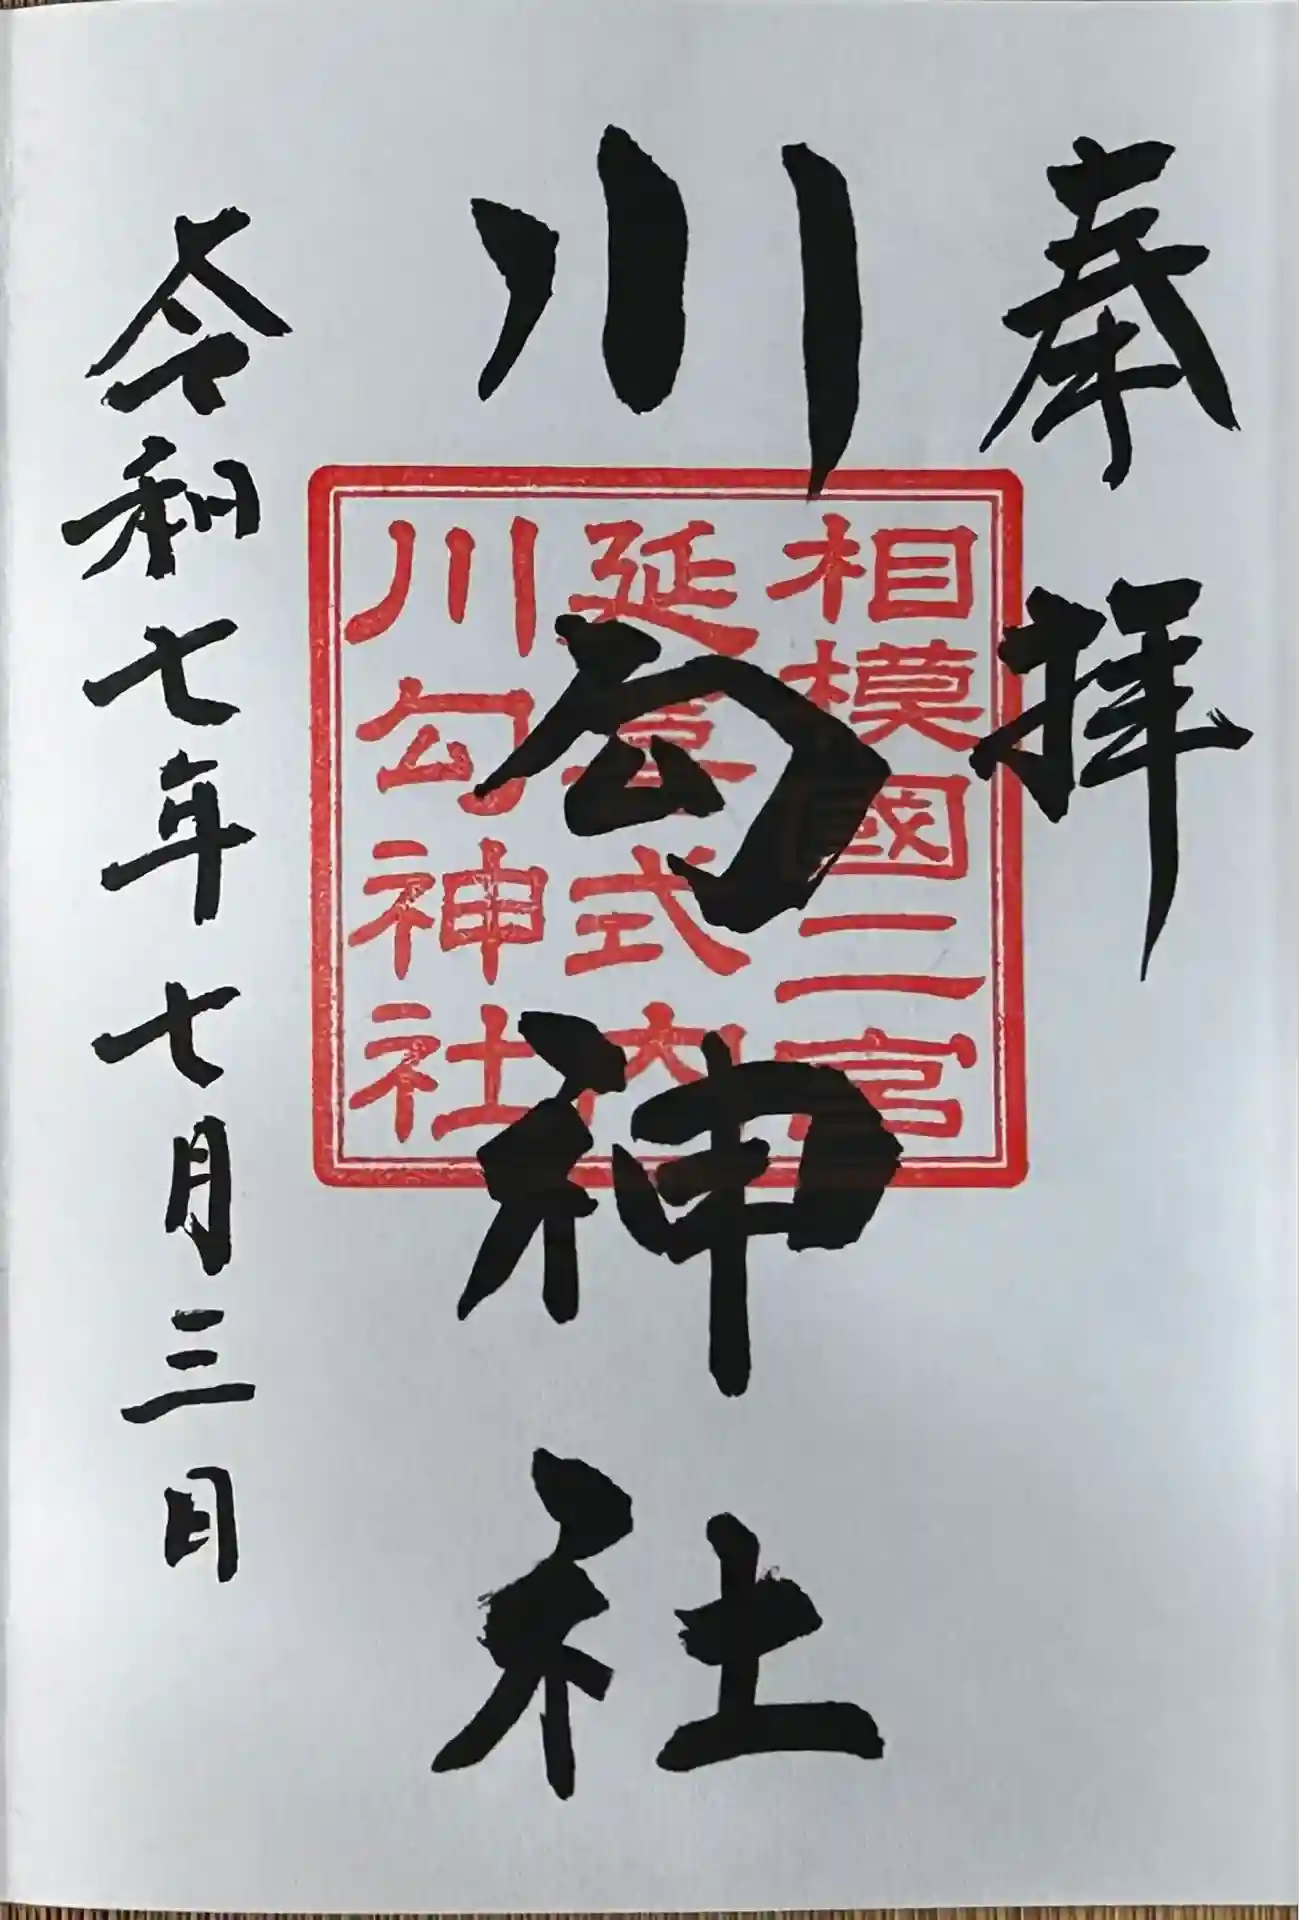 奉拝
川勾神社
相模國二宮
延喜式内
川勾神社
令和七年七月三日